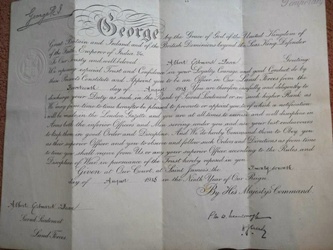 George R.I.
George by the Grace of God of the United Kingdom of
Great Britain and Ireland and of the British Dominions beyond the Seas King Defender
of the Faith, Emperor of India &c.
To Our trusty and well beloved Albert Edward Greeting
We reposing especial Trust and Confidence in your Loyalty Courage and good Conduct do by
these Presents Constitute and Appoint you to be an Officer in Our Land Forces from the
day of August You are therefore carefully and diligently to
discharge your Duty as such in the Rank of Second Lieutenant or in such higher Rank as
We may from time to time hereafter be pleased to promote or appoint you to of which a notification
will be made in the London Gazette and you are at all times to exercise and well discipline in
Arms both the inferior Officers and Men serving under you and use your best endeavours
to keep them in good Order and Discipline And We do hereby Command them to Obey you
as their superior Officer and you to observe and follow such Orders and Directions as from time
to time you shall receive from Us or any your superior Officer according to the Rules and
Discipline of War in pursuance of the Trust hereby reposed in you
Given at Our Court at Saint James's the
day of August in the Ninth Year of Our Reign
By His Majesty's Command
Albert Edward
Second Lieutenant
Land Forces